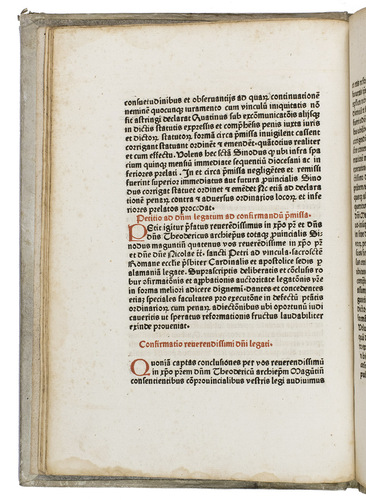 consuetudinibus et obseruantijs ad quaꝝ continuationē
neminē quocunqꝫ iuramento cum vinculū iniquitatis nō
sit astringi declarat Quatinus sub excōmunicatōis alijsqꝫ
in dictis statutis expressis et comprehēsis penis iuxta iuris
et dictoꝝ statutoꝝ formā circa p̄missa inuigilent cassent
corrigant statuant ordinēt ⁊ emēdēt quātotius realiter
et cum effectu. Volens hec sctā Sinodus qꝫ ubi infra spa
cium quinqꝫ mensiū immediate sequentiū diocesani ac in
feriores prelati. In et circa p̄missa negligētes et remissi
fuerint superior immediatus aut futura ꝓuincialis Sino
dus corrigat statuet ordinet ⁊ emēdet Nc etiā ad declara
tionē penaꝝ contra ⁊ aduersus ordinarios locoꝝ et in
feriores prelatos procedat.
Petitio ad dnm legatum ad confirmandū p̄missa.
Petit igitur p̄fatus reuerēdissimus in xp̄o pr̄ et dn̄s
dn̄s Theodericus archiepūs totaqꝫ ꝓuincialis Si
nodus maguntiñ quatenus vos reuerēdissime in xp̄o pr̄
et dn̄e dn̄e Nicolae tt. sancti Petri ad vincula sacroscte
Romane ecctie p̄sbiter Cardinalis et apostolice sedis ꝑ
alamaniā legate. Suprascriptis deliberatis et cōclusis ro
bur ofirmationis et approbationis auctoritate legatōnis vr̄e
in forma meliori adiicere dignemini dantes et concedentes
etiaꝫ speciales facultates pro executōne in defectū p̄fatis
ordinarioꝝ cum penaꝝ adiectionibus ubi oportunū iudi
caueritis ut speratus reformationis fructus laudabiliter
exinde proueniat.
Confirmatio reuerendissimi dn̄i legati.
Quoniā captas conclusiones per vos reuerendissimū
in xp̄o prem dnm Theodericū archiepm Magūtiñ
consentiencibus cōprouincialibus vestris legi audiuimus